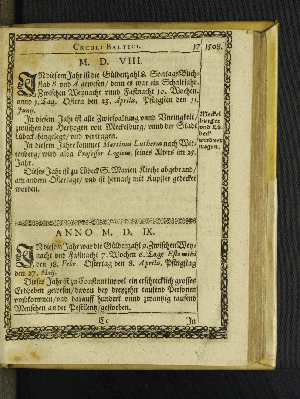 CREULI BALTICI. 17 1508.
M. D. VIII.
IN diesem Jahr ist die Güldenzahl 8. Sontags Buch-
stab B und A gewesen/ denn es war ein Schaltjahr.
Zwischen Weynacht unnd Fastnacht 10. Wochen.
unnd 1. Tag. Ostern den 23. Aprilis, Pfingsten den 11.
Junij.
In diesem Jahr ist alle Zwiespaltung unnd Uneinigkeit/
zwischen den Hertzogen von Meckelburg/ unnd der Stadt
Lübeck hingelegt/ und vertragen.
In diesem Jahr kommet Martinus Lutherus nach Wit-
tenberg/ wird alda Professor Logices, seines Alters im 25.
Jahr.
Dieses Jahr ist zu Lübeck S. Marien Kirche abgebrand/
am andern Ostertage/ und ist hernach mit Kupffer gedecket
worden.
Meckel
burg
und Lü-
beck
vertragen.
ANNO M. D. IX.
IN diesem Jahr war die Güldenzahl 9. Zwischen Wey-
nacht und Fastnacht 7. Wochen 6. Tage Esto mihi
den 18. Febr. Ostertag den 8. Aprilis, Pfingsttag
den 27. Maij.
Dieses Jahr ist zu Constantinopel ein erschrecklich grosses
Erdbeben gewesen/ davon bey dreyzehn tausend Personen
umbkommen/ und darauff hundert unnd zwantzig tausend
Menschen an der Pestilentz gestorben.
Ee In